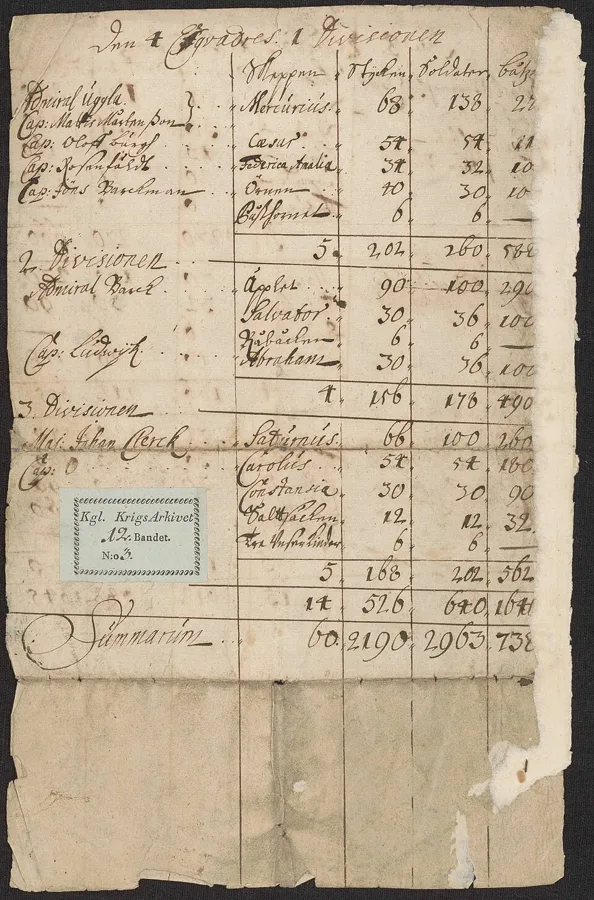 Den 4 Esqvadres. 1 Divissionen
Skeppen Stycken Soldater båtz
Admiral Uggla.
Cap: Matts Mårtensson Mercurius. 68 138 22
Cap: Oloff Cæsar 54 54 11
Cap: Rosenfäldt Federica Amalia 34 32 10
Cap: Jöns Barckman Örnen 40 30 10
Posthornet 6 6 —
5. 202 260 588
2 Divisionen
Admiral Barck Äpplet 90 100 290
Salvator 30 36 100
Råbåcken 6 6 —
Cap: Ludwijk Abraham 30 36 100
4 156 178 490
3 Divisionen
Maj: Johan Clerck Saturnus. 66 100 260
Cap: Carolus 54 54 180
Constansia 30 30 90
Saltsäcken 12 12 32
Tre 6 6 —
5 168 202 562
14 526 640 164
Summarum 60. 2190 2963 738
Kgl. KrigsArkivet
12. Bandet.
N:o 3.